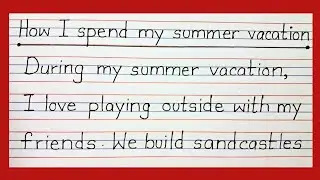 How I spend my summer vacation
During my summer vacation,
I love playing outside with my
friends. We build sandcastles